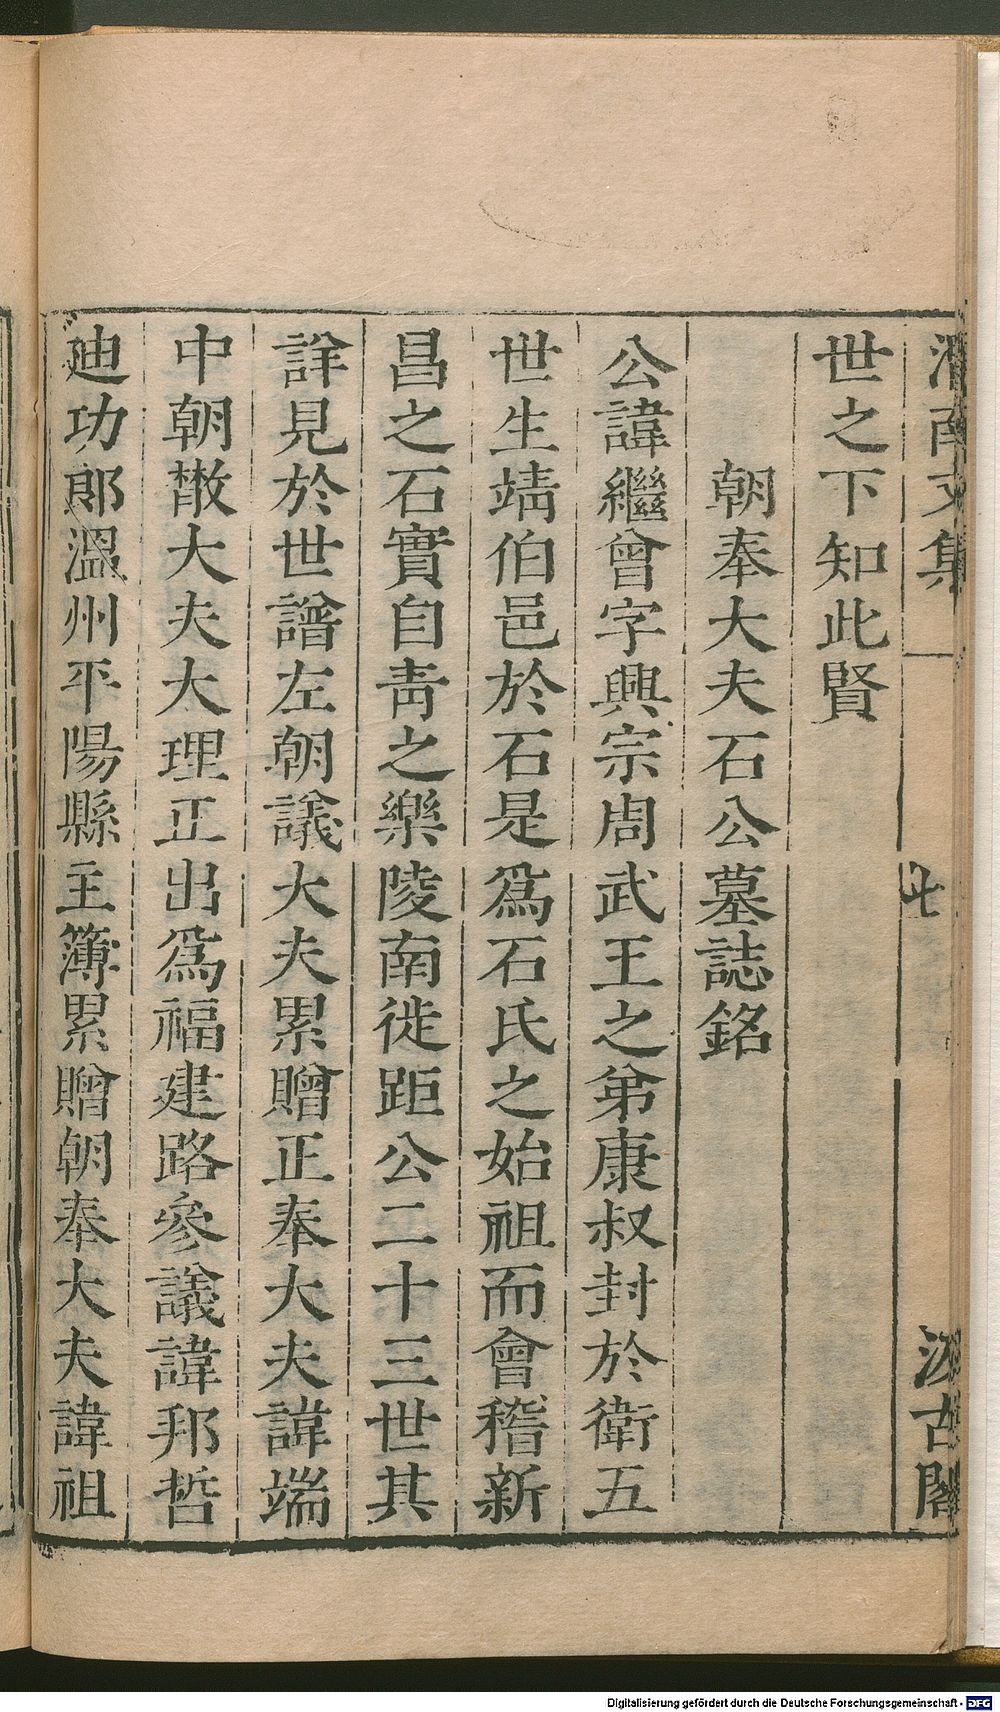 渭南文集 卅 汲古閣
世之下知此賢
朝奉大夫石公墓誌銘
公諱繼曾字興宗周武王之弟康叔封於衛五
世生靖伯邑於石是爲石氏之始祖而會稽新
昌之石實自青之樂陵南徙距公二十三世其
詳見於世譜左朝議大夫累贈正奉大夫諱端
中朝散大夫大理正出爲福建路參議諱邦哲
迪功郎溫州平陽縣主簿累贈朝奉大夫諱祖
Digitalisierung gefördert durch die Deutsche Forschungsgemeinschaft - DFG